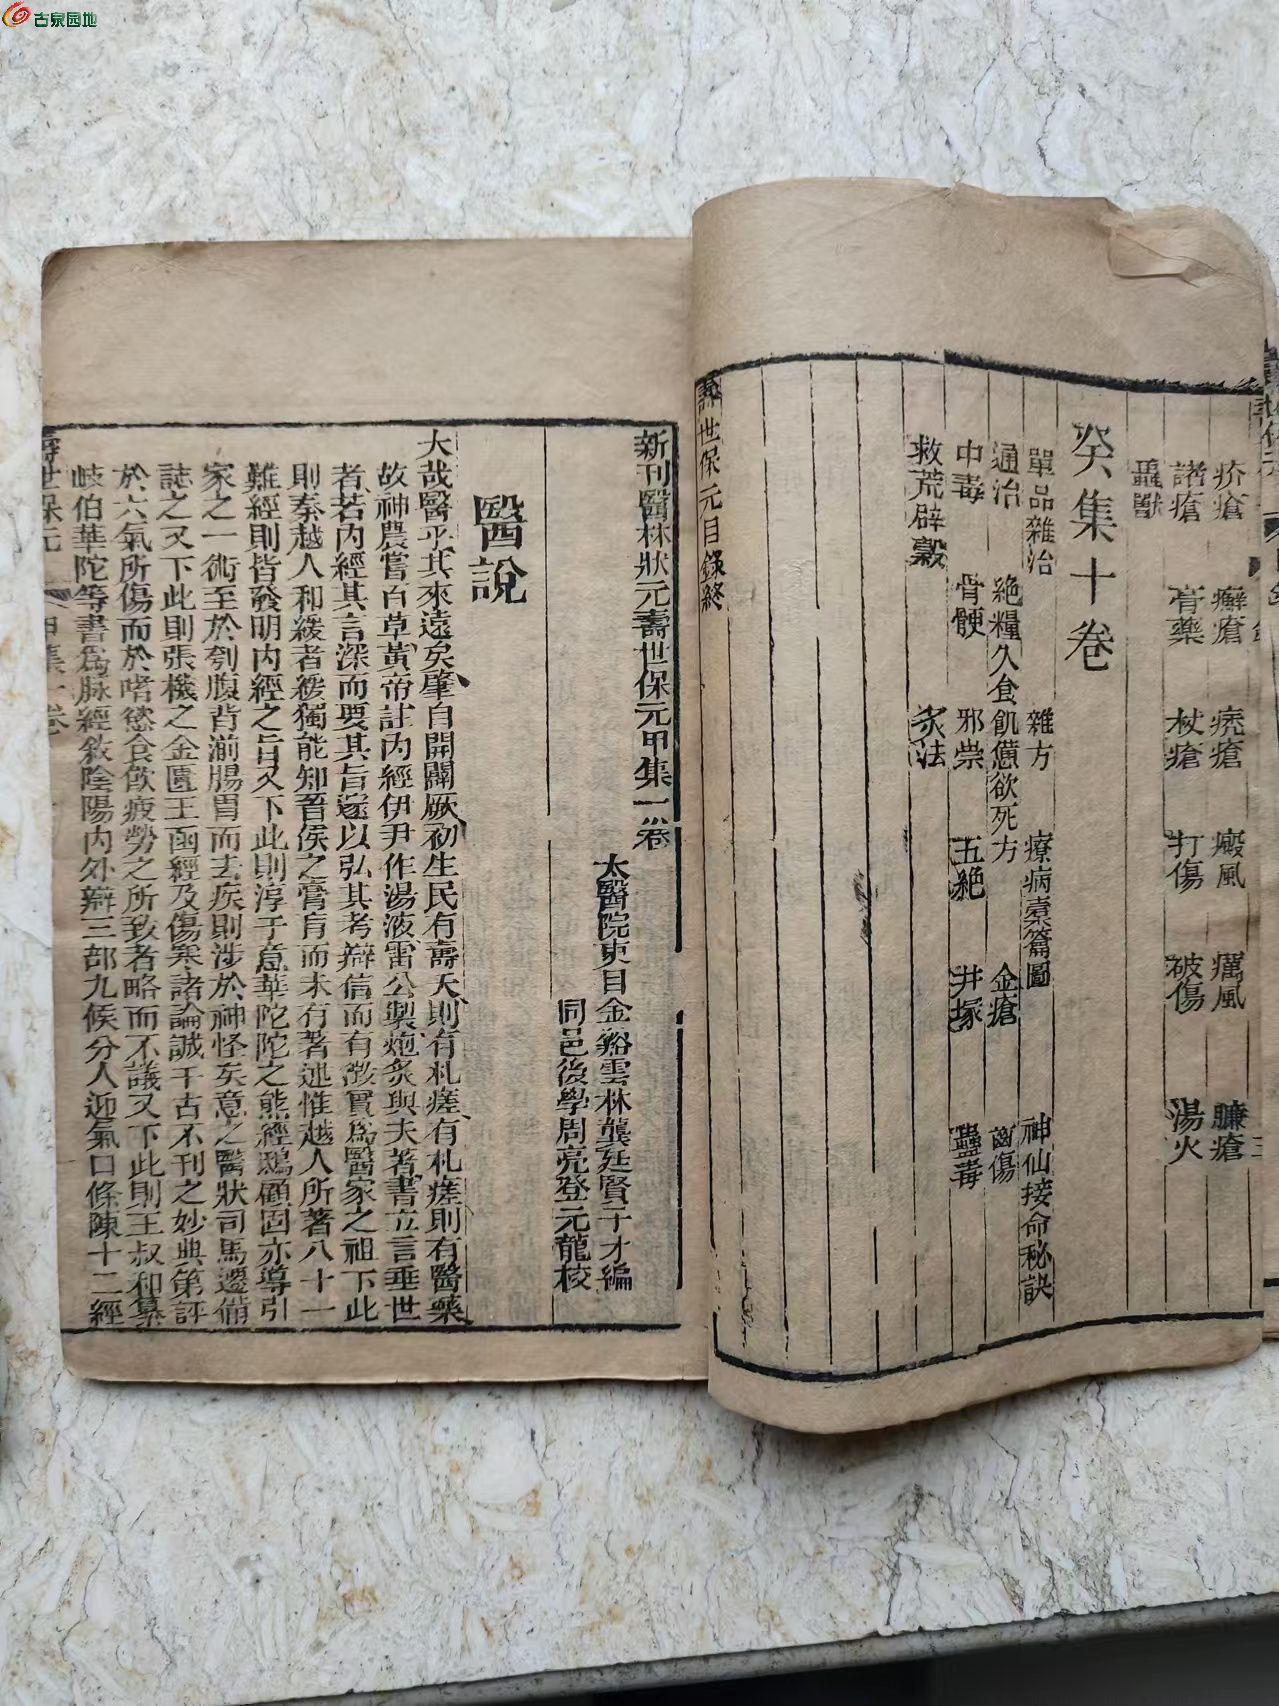 古泉园地
疥瘡 癬瘡 疣瘡 癜風 癘風 臁瘡
諸瘡 膏藥 杖瘡 打傷 破傷 湯火
蟲獸
癸集十卷
單品雜治 雜方 療病素篇圖 神仙接命秘訣
通治 絶糧久食飢憊欲死方 金瘡 齒傷
中毒 骨骾 邪祟 五絶 井塚 蠱毒
救荒辟穀 炙法
壽世保元目錄終
新刊醫林狀元壽世保元甲集一卷
太醫院吏目金谿雲林龔廷賢子才編
同邑後學周亮登元龍校
醫說
大哉醫乎其來遠矣肇自開闢厥初生民有壽夭則有札瘥有札瘥則有醫藥
故神農嘗百草黃帝註內經伊尹作湯液雷公製炮炙與夫著書立言垂世
者若內經其言深而要其旨邃以弘其考辯信而有徵實爲醫家之祖下此
則秦越人和緩者緩獨能知晉侯之膏肓而未有著述惟越人所著八十一
難經則皆發明內經之旨又下此則淳于意華陀陀之熊經鴟顧固亦導引
家之一術至於刳腹背湔腸胃而去疾則涉於神怪矣意之醫狀司馬遷備
誌之又下此則張機之金匱玉函經及傷寒諸論誠千古不刊之妙典第詳
於六氣所傷而於嗜慾食飲疲勞之所致者略而不議又下此則王叔和纂
岐伯華陀等書爲脉經敘陰陽內外辯三部九候分人迎氣口條陳十二經
壽世保元 甲集一卷